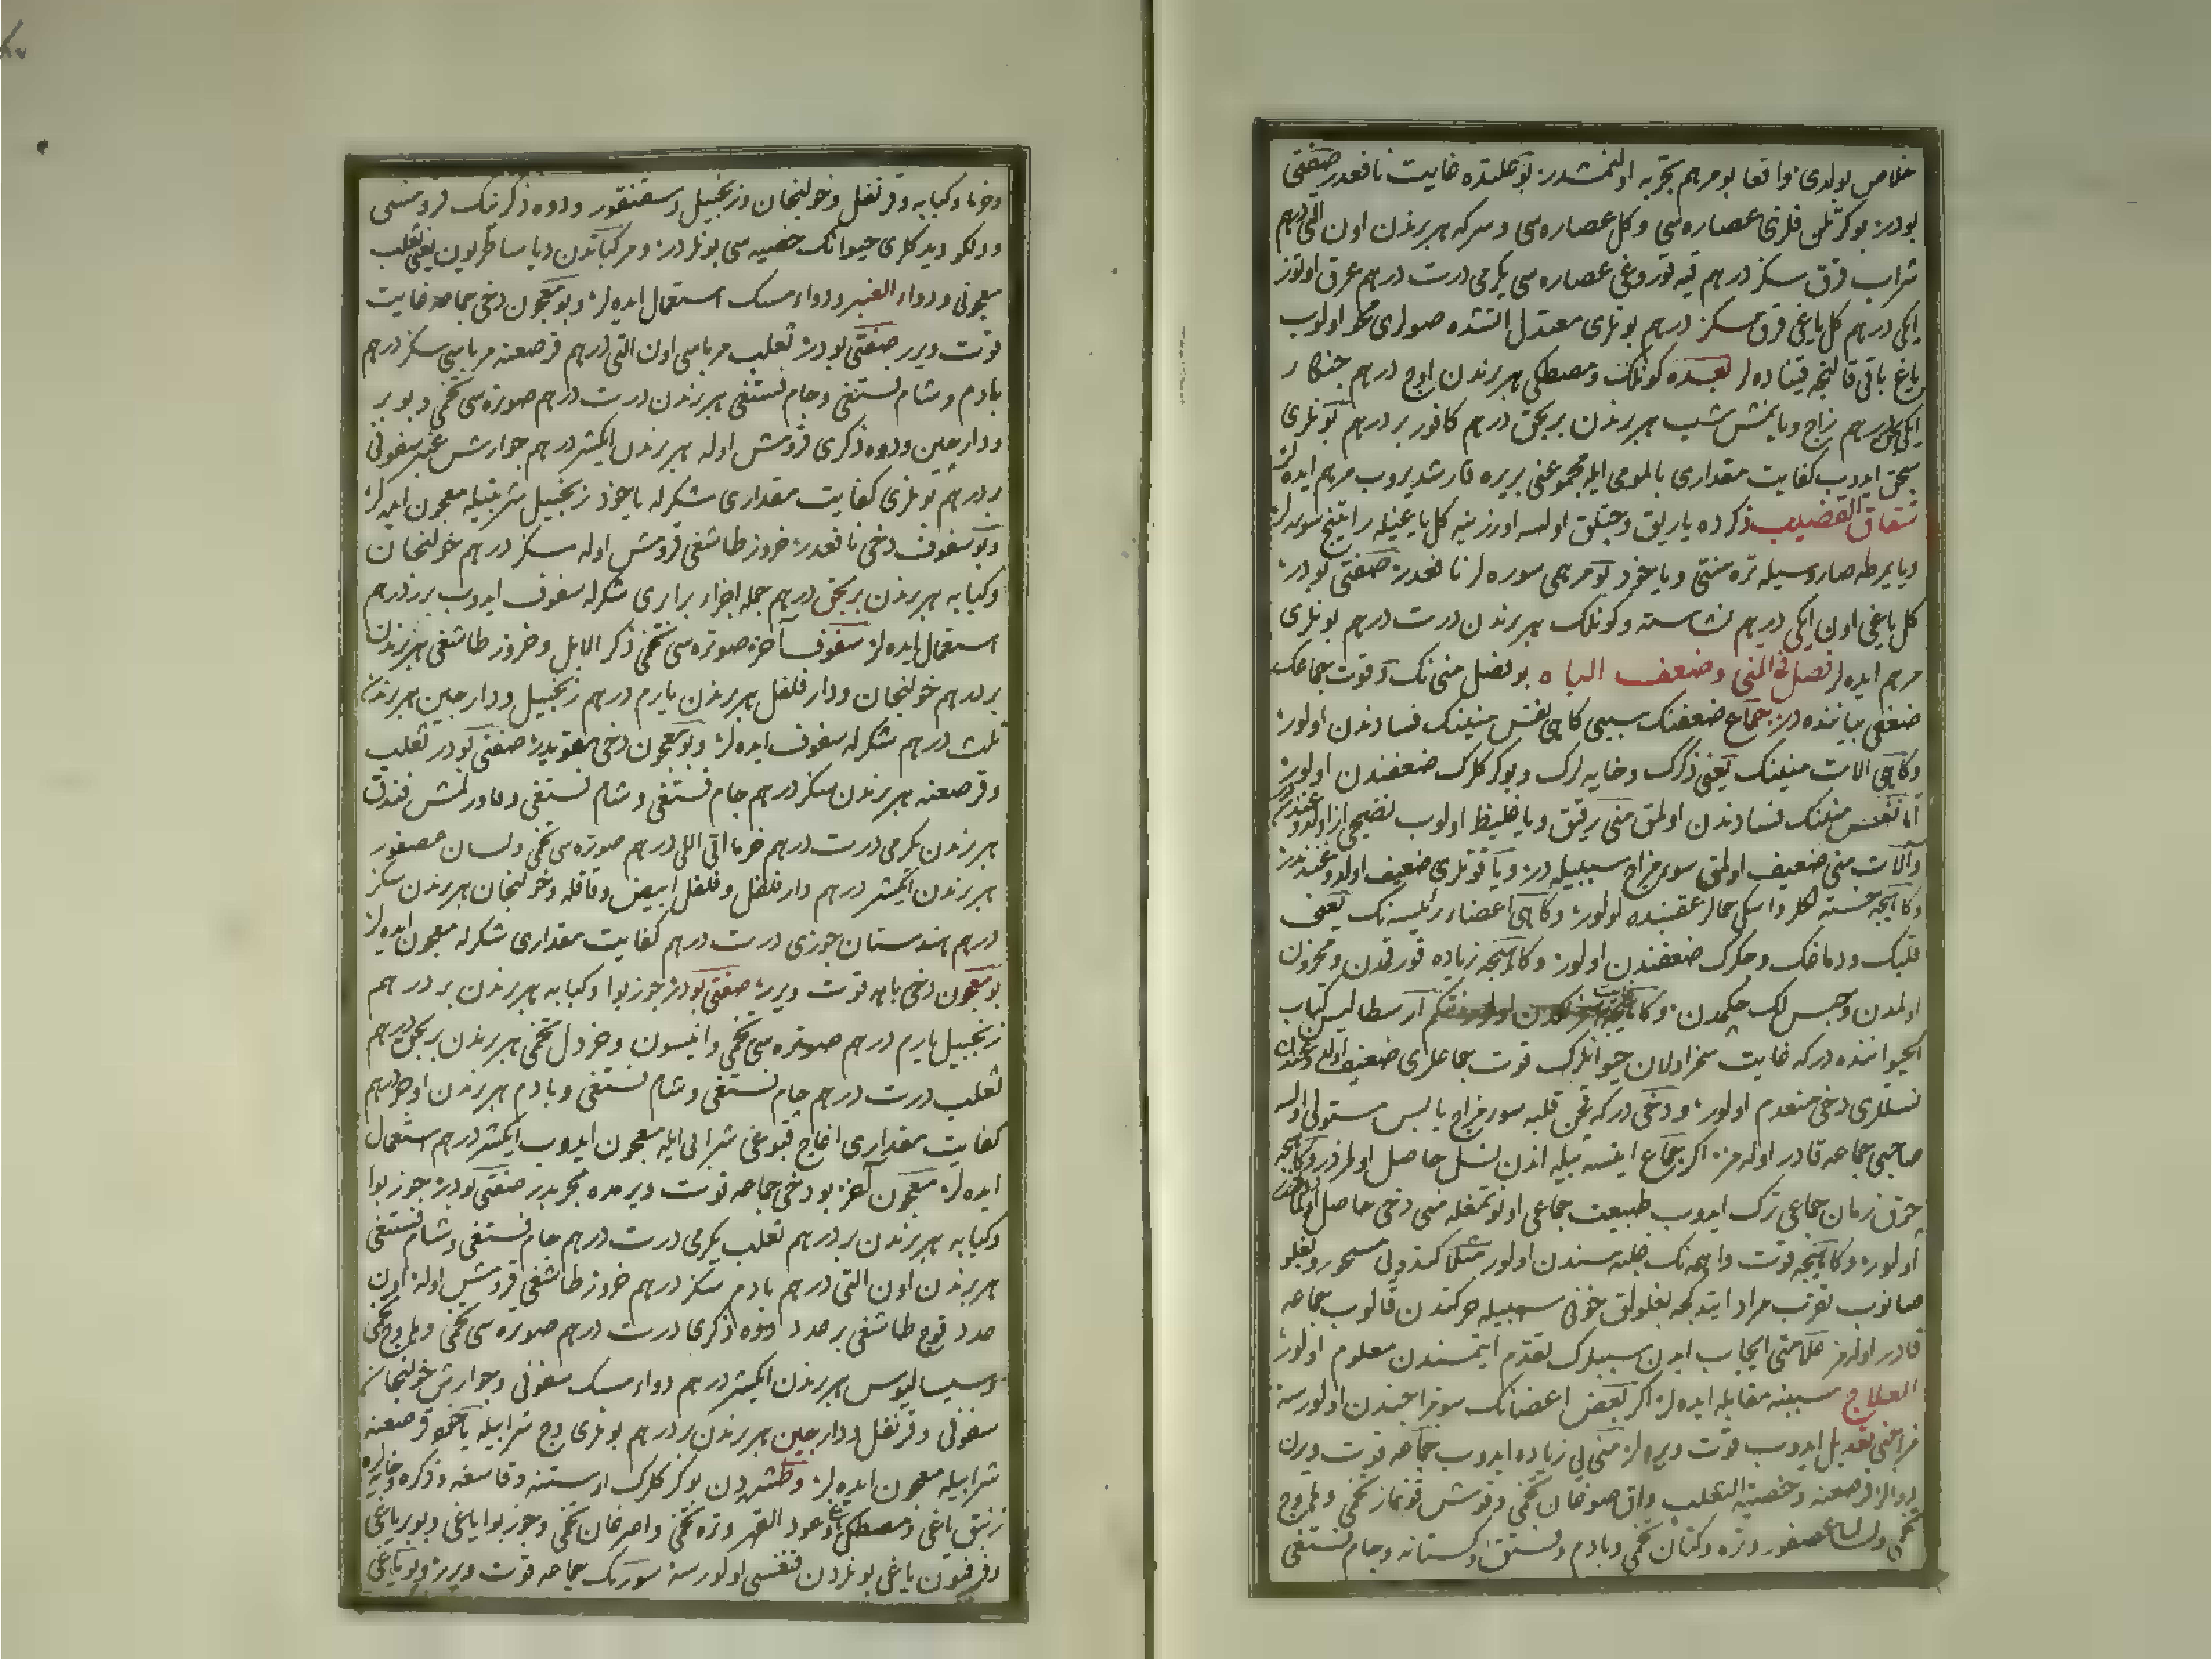 خلاص بولدى واقعا بو مرهم تجربه اولنمشدر بو علتده غايت نافعدر صفتى
بودر عصاره سى وكل عصاره سى وسركه هر برندن اون التى درهم
شراب قرق سكز درهم عصاره سى يكرمى درت درهم عرق اوتوز
ايكى درهم كل ياغى قرق سكز درهم بونلرى معتدل آتشده صولرى محو اولوب
ياغ باقى قالنجه قيناده لر بعده كونلك ومصطكى هر برندن اوچ درهم جنكار
ايكى درهم زاج ويانمش شب هر برندن بر بچق درهم كافور بر درهم بونلرى
سحق ايدوب كفايت مقدارى بالمومى ايله مجموعنى بريره قارشديروب مرهم ايده لر
شقاق القضيب ذكرده ياريق وچتلق اولسه اوزرينه كل ياغيله راتينج سوره لر
ويا يمرطه صاروسيله تره منتى وياخود بو مرهمى سوره لر نافعدر صفتى بودر
كل ياغى اون ايكى درهم نشاسته وكونلك هر برندن درت درهم بونلرى
مرهم ايده لر فصل فى المنى وضعف الباه بو فصل منى نك وقوت جماعك
ضعفى بياننده در جماع ضعفنك سببى كاهى نفس منينك فسادندن اولور
وكاهى آلات منينك يعنى ذكرك وخايه لرك وبوكركلرك ضعفندن اولور
اما نفس منينك فسادندن اولمق منى رقيق ويا غليظ اولوب نضجى از اولدوغندندر
وآلات منى ضعيف اولمق سوء مزاج سببيله در ويا قوتلرى ضعيف اولدوغندندر
وكاهيجه خسته لكلر واسكى حمالر عقبنده اولور وكاهى اعضاء رئيسه نك يعنى
قلبك ودماغك وجكرك ضعفندن اولور وكاهيجه زياده قورقدن ومحزون
اولمدن وحبس لك چكمدن وكاهيجه ارسطاليس كتاب
الحيواننده دركه غايت سمز اولان حيوانلرك قوت جماعلرى ضعيف
نسللرى دخى منعدم اولور ودخى دركه قچن قلبه سوء مزاج يابس مستولى اولسه
صاحبى جماعه قادر اوله مز اكر جماع ايتسه بيله اندن نسل حاصل اولمز وكاهيجه
چوق زمان جماعى ترك ايدوب طبيعت جماعى اونوتمغله منى دخى حاصل
اولور وكاهيجه قوت واهمه نك غلبه سندن اولور مثلا كندويى مسحور وبغلو
صانوب تقرب مراد ايتدكجه بغلولق خوفى سببيله حركتدن قالوب جماعه
قادر اولمز علامتى ايجاب ايدن سببلرك تقدم ايتمسندن معلوم اولور
العلاج سببنه مقابله ايده لر اكر بعض اعضانك سوء مزاجندن اولورسه
مزاجنى تعديل ايدوب قوت ويره لر منى يى زياده ايدوب جماعه قوت ويرن
دوالر قرصعنه وخصية الثعلب واق صوغان تخمى وقوش قونماز تخمى
تخمى ولسان عصفور وتره وكتان تخمى وبادم وفستق وكستانه وچام فستغى
وخرما وكبابه وقرنفل وخولنجان وزنجبيل وسقنقور ودوه ذكرينك قروسنى
وديلكو ديدكلرى حيوانك خصيه سى بونلردر ومركباتدن ديا ساطريون يعنى ثعلب
معجونى ودواء العنبر ودواء مسك استعمال ايده لر وبو معجون دخى جماعه غايت
قوت ويرر صفتى بودر ثعلب مرباسى اون التى درهم قرصعنه مرباسى سكز درهم
بادم وشام فستغى وچام فستغى هر برندن درت درهم تخمى وبوبر
ودارچين ودوه ذكرى قرومش اوله هر برندن ايكيشر درهم جوارش عنبر سفوفى
بر درهم بونلرى كفايت مقدارى شكرله ياخود زنجبيل شربتيله معجون ايده لر
وبو سفوف دخى نافعدر خروز طاشغى قرومش اوله سكز درهم خولنجان
وكبابه هر برندن بر بچق درهم جمله اجزاء برابرى شكرله سفوف ايدوب برر درهم
استعمال ايده لر سفوف آخر تخمى ذكر الابل وخروز طاشغى هر برندن
بر درهم خولنجان ودار فلفل هر برندن يارم درهم زنجبيل ودارچين هر برندن
ثلث درهم شكرله سفوف ايده لر وبو معجون دخى مقويدر صفتى بودر ثعلب
وقرصعنه هر برندن سكز درهم چام فستغى وشام فستغى وقاورلمش فندق
هر برندن يكرمى درت درهم خرما اتى اللى درهم تخمى ولسان عصفور
هر برندن ايكيشر درهم دار فلفل وفلفل ابيض وقاقله وخولنجان هر برندن سكز
درهم هندستان جوزى درت درهم كفايت مقدارى شكرله معجون ايده لر
بو معجون دخى باهه قوت ويرر صفتى بودر جوز بوا وكبابه هر برندن بر درهم
زنجبيل يارم درهم تخمى وانيسون وخردل تخمى هر برندن بر بچق درهم
ثعلب درت درهم چام فستغى وشام فستغى وبادم هر برندن اوچر درهم
كفايت مقدارى اغاج قبوغى شرابى ايله معجون ايدوب ايكيشر درهم استعمال
ايده لر معجون آخر بو دخى جماعه قوت ويرمده مجربدر صفتى بودر جوز بوا
وكبابه هر برندن بر درهم ثعلب يكرمى درت درهم چام فستغى وشام فستغى
هر برندن اون التى درهم بادم سكز درهم خروز طاشغى قرومش اوله اون
عدد قوچ طاشغى بر عدد دوه ذكرى درت درهم تخمى
وسيساليوس هر برندن ايكيشر درهم دواء مسك سفوفى وجوارش خولنجان
سفوفى وقرنفل ودارچين هر برندن بر درهم بونلرى شرابيله قرصعنه
شرابيله معجون ايده لر وطشره دن بوكركلرك اوستنه وقاسغه وذكره وخايه لره
زنبق ياغى ومصطكى ياغى وعود القهر وتره تخمى تخمى وجوز بوا ياغى وبوبر ياغى
وفرفيون ياغى بونلردن قنغسى اولورسه سورمك جماعه قوت ويرر